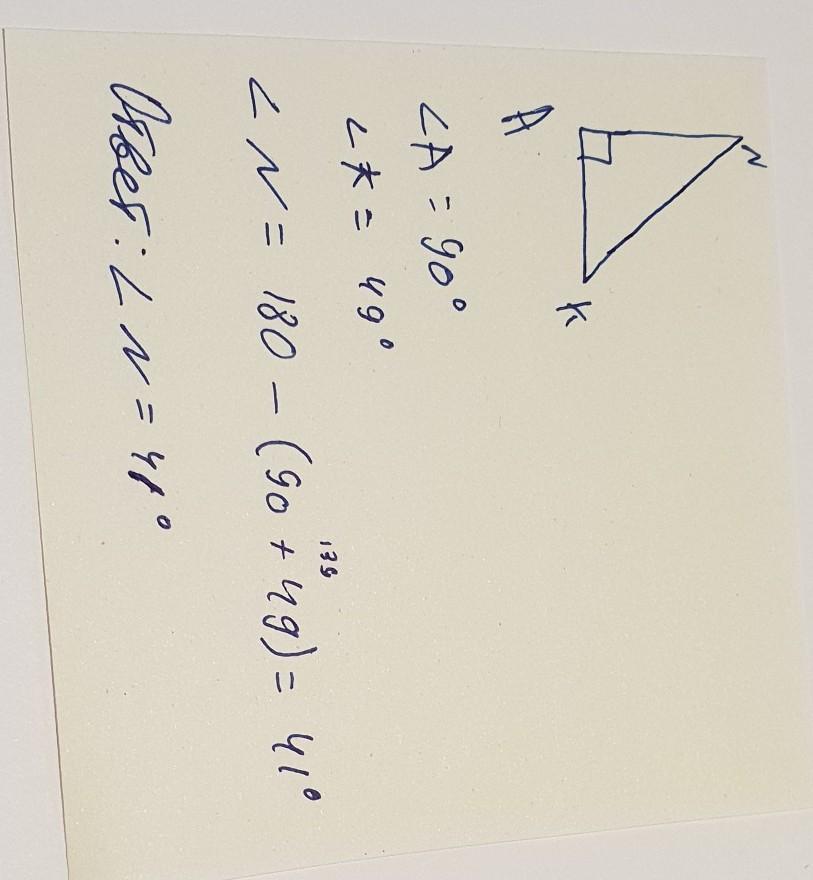 N
A
K
∠A = 90°
∠K = 49°
139
∠N = 180 - (90 + 49) = 41°
Ответ: ∠N = 41°